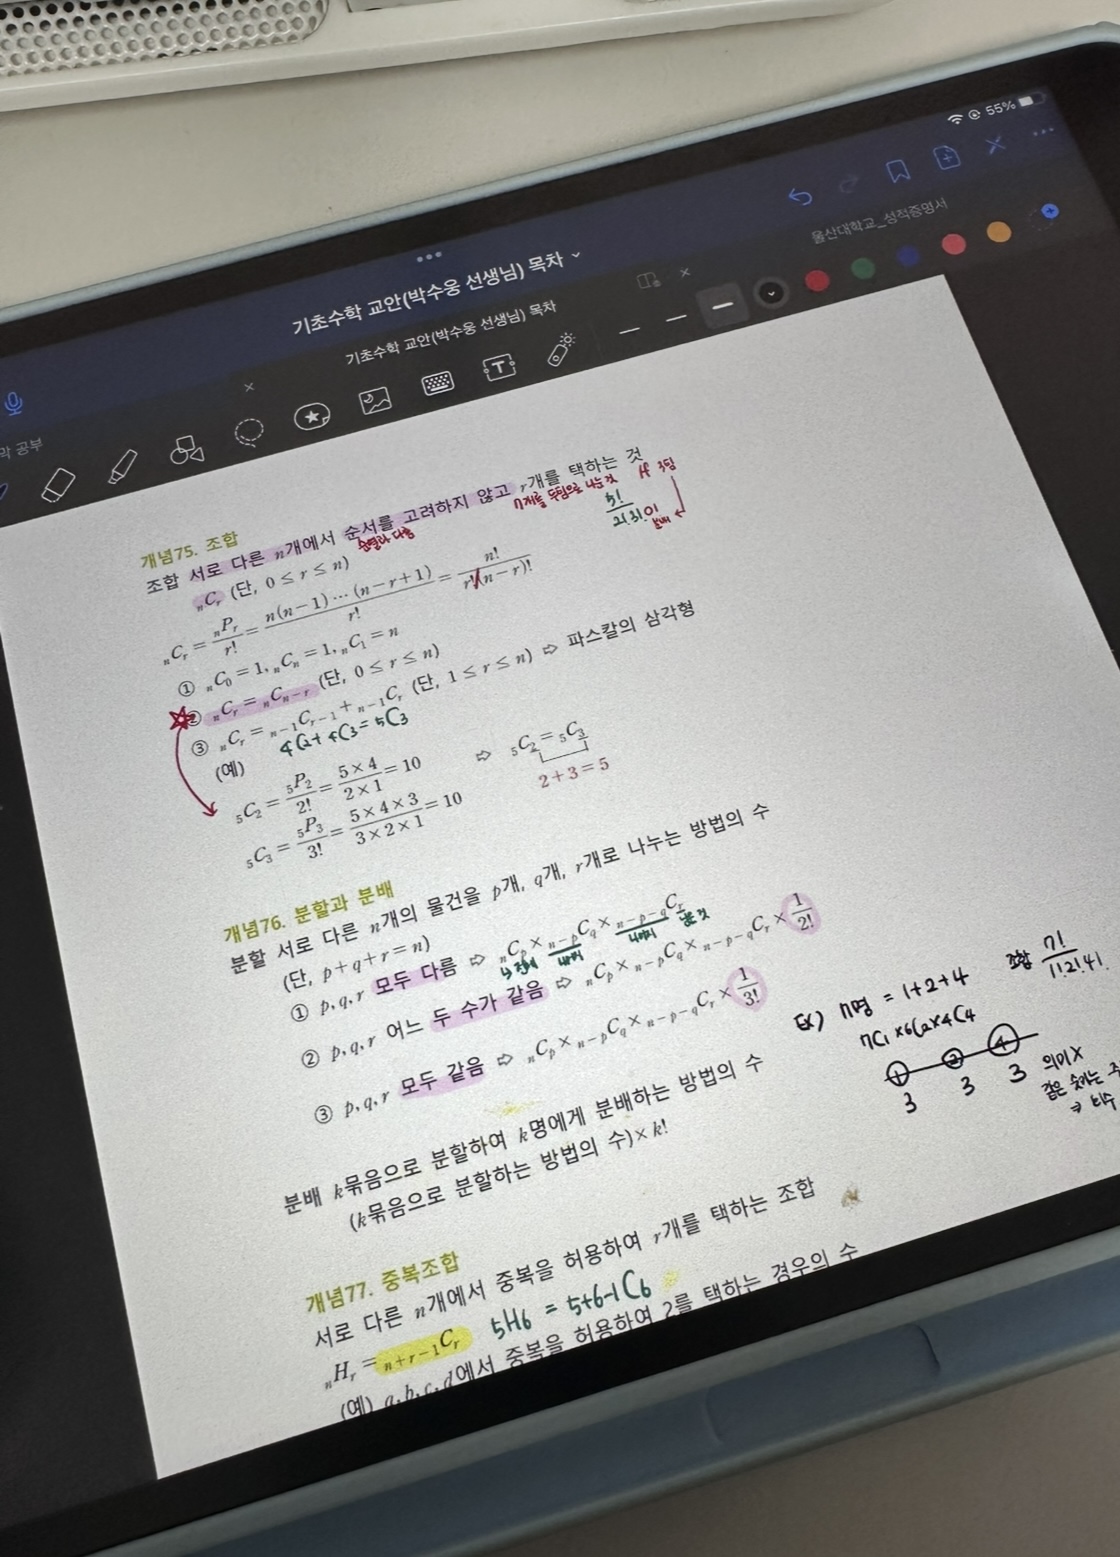 55%
울산대학교_성적증명서
기초수학 교안(박수웅 선생님) 목차
기초수학 교안(박수웅 선생님) 목차
막 공부
개념75. 조합
조합 서로 다른 n개에서 순서를 고려하지 않고 r개를 택하는 것
순열과 다름
n개를 두팀으로 나눈것
if 3팀
5!/2!3!0!
분배
nCr (단, 0≤r≤n)
nCr = nPr/r! = n(n−1)⋯(n−r+1)/r! = n!/r!(n−r)!
① nC0=1, nCn=1, nC1=n
② nCr = nCn−r (단, 0≤r≤n)
③ nCr = n−1Cr−1 + n−1Cr (단, 1≤r≤n) ⇨ 파스칼의 삼각형
4C2+4C3=5C3
(예)
5C2 = 5P2/2! = 5×4/2×1 = 10 ⇨ 5C2 = 5C3
2+3=5
5C3 = 5P3/3! = 5×4×3/3×2×1 = 10
개념76. 분할과 분배
분할 서로 다른 n개의 물건을 p개, q개, r개로 나누는 방법의 수
(단, p+q+r=n)
① p,q,r 모두 다름 ⇨ nCp × n−pCq × n−p−qCr
나머지
나머지
② p,q,r 어느 두 수가 같음 ⇨ nCp × n−pCq × n−p−qCr × 1/2!
③ p,q,r 모두 같음 ⇨ nCp × n−pCq × n−p−qCr × 1/3!
Ex) 7명 = 1+2+4
조합 7!/1!2!4!
7C1×6C2×4C4
① ② ④
3 3 3
의미X
같은 숫자는
분배 k묶음으로 분할하여 k명에게 분배하는 방법의 수
(k묶음으로 분할하는 방법의 수)×k!
개념77. 중복조합
서로 다른 n개에서 중복을 허용하여 r개를 택하는 조합
nHr = n+r−1Cr
5H6 = 5+6-1C6
(예) a,b,c,d에서 중복을 허용하여 2를 택하는 경우의 수